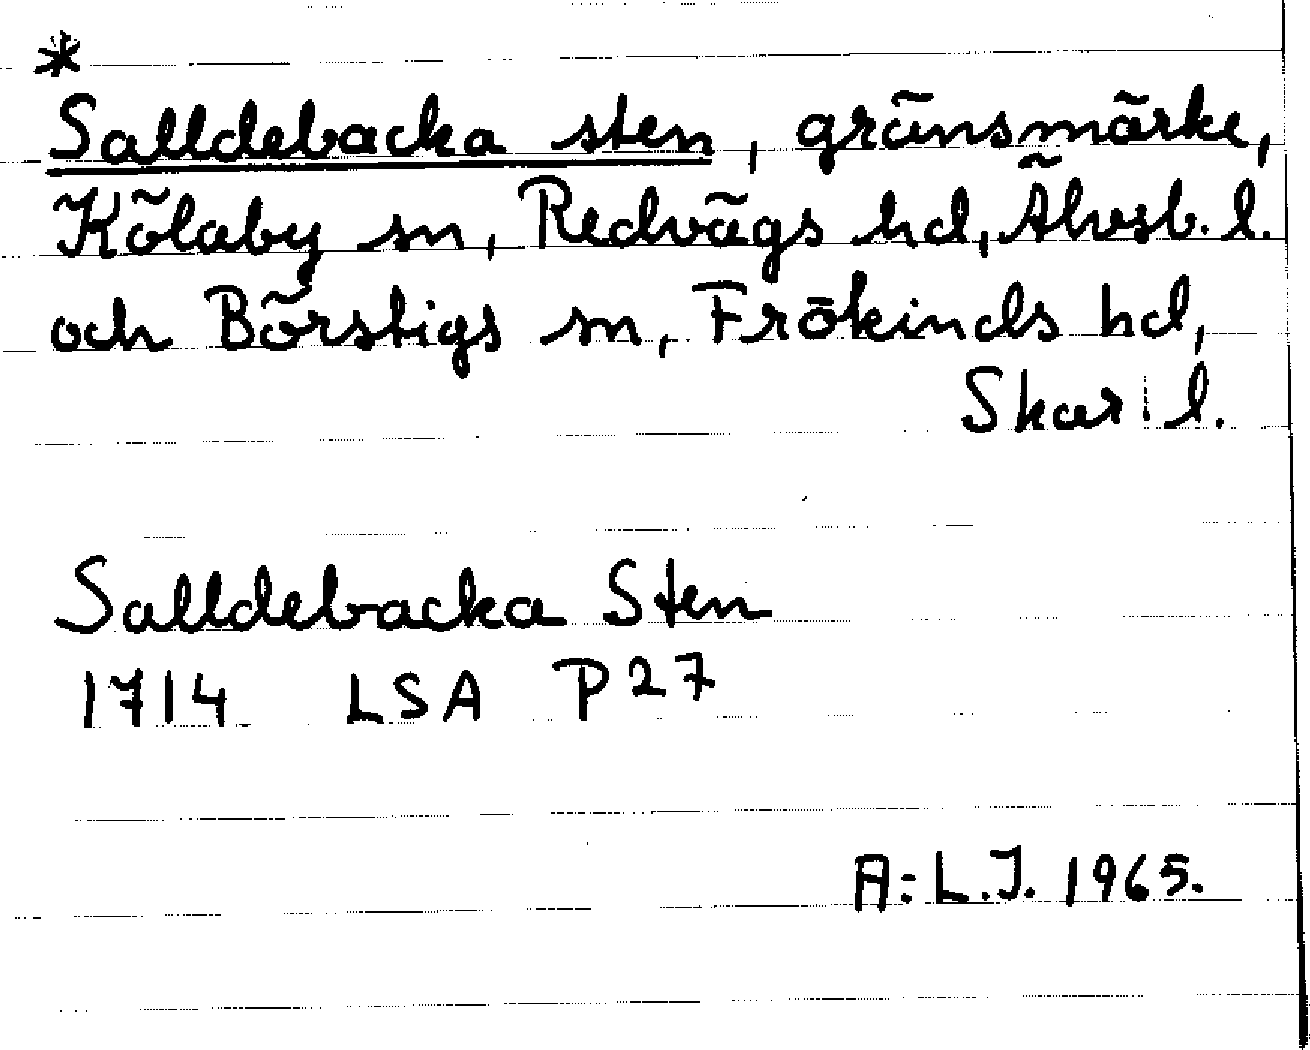 *
Salldebacka sten, gränsmärke,
Kölaby sn, Redvägs hd, Älvsb. l.
och Börstigs sn, Frökinds hd,
Skar. l.
Salldebacka Sten
1714 LSA P 27
A:L.J. 1965.